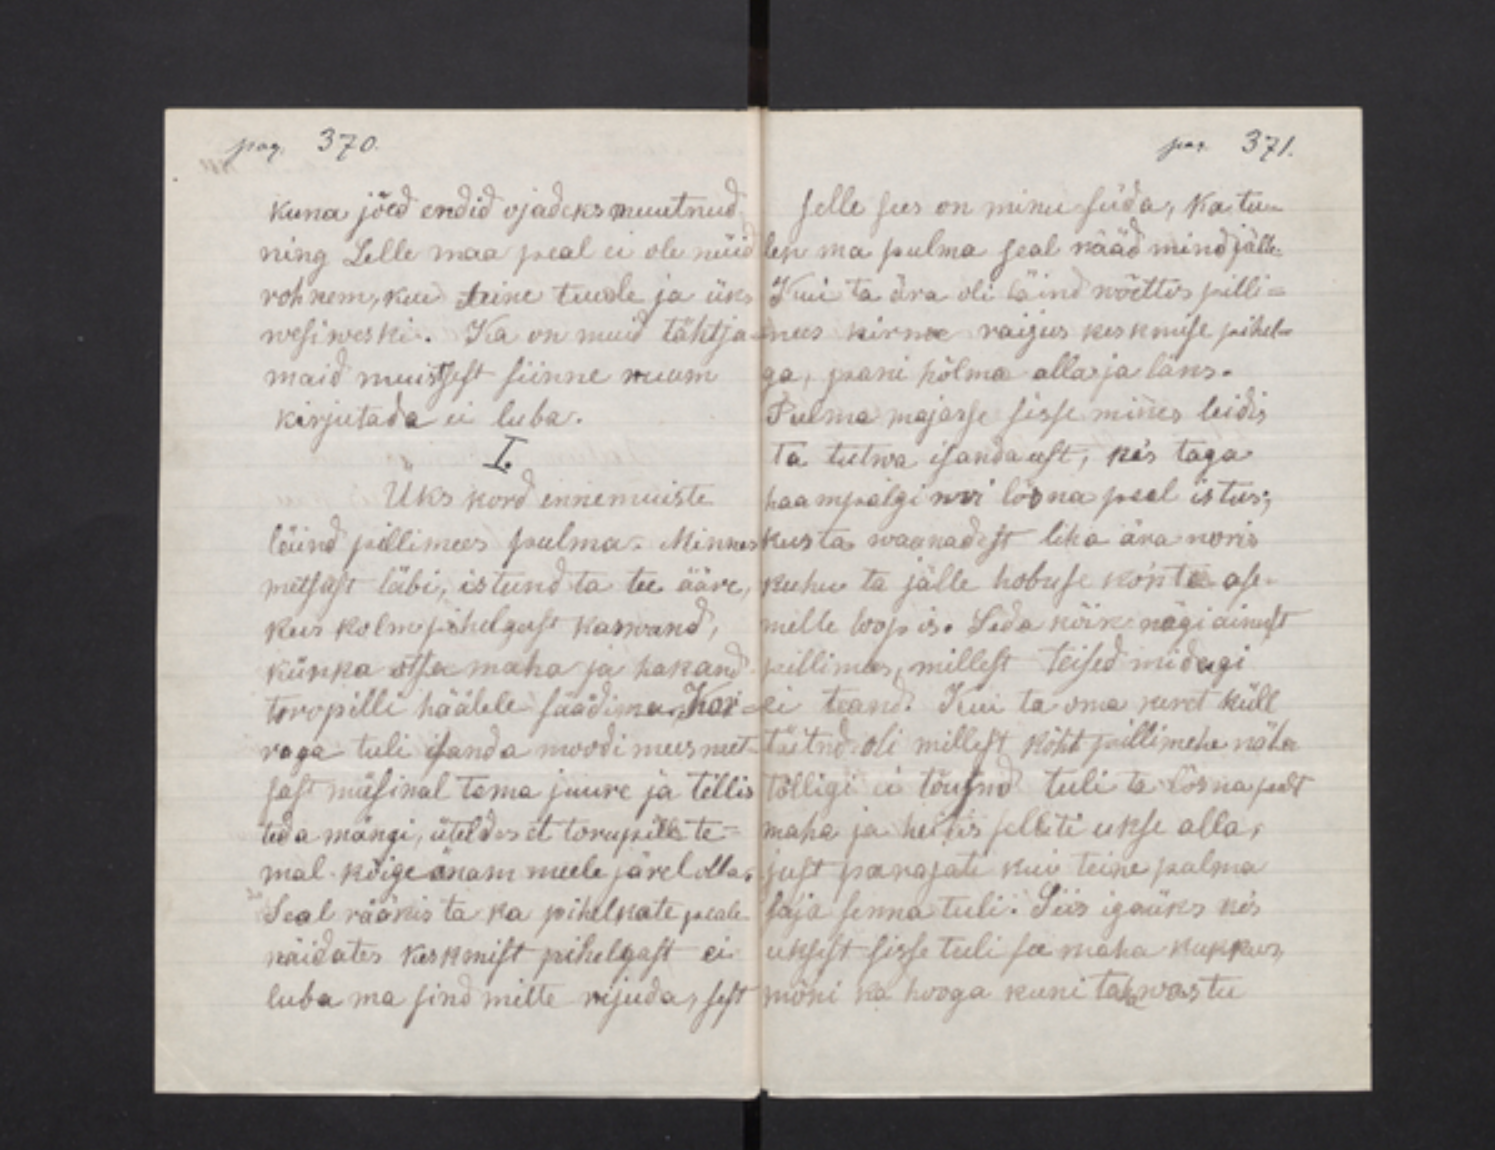 pag. 370.
kuna jõed endid ojadeks muutnud
ning Lelle maa peal ei ole nüid
rohkem, kui teine tuule ja üks
wesiweski. Ka on muid tähtja-
maid muistsest siinne ruum
kirjutada ei luba.
I.
Üks kord ennemuiste
läind pillimees pulma. Minnes
metsast läbi, istund ta tee ääre,
kus kolm pihelgast kaswand,
künka otsa maha ja hakand
toropilli häälele säädima. Kor-
raga tuli isanda moodi mees met-
sast müsinal tema juure ja tellis
teda mängi, üteldes et torupill te-
mal kõige änam meele järel olla.
Seal rääkis ta ka pihelkate peale
näidates keskmist pihelgast ei
luba ma sind mitte rijuda, sest
pag. 371.
selle sees on minu süda, ka tu-
len ma pulma seal nääd mind jälle.
Kui ta ära oli läind wõttis pilli-
mees kirwe raijus keskmise pihel-
ga, pani hõlma alla ja läks.
Pulma majasse sisse minnes leidis
ta tutwa isanda eest, kes taga
haampalgi wõi lõsna peal istus,
kus ta waanadest liha ära noris
kuhu ta jälle hobuse kontä ase-
melle loopis. Seda kõik nägi ainust
pillimees, millest teised midagi
ei teand. Kui ta oma keret küll
täitnd oli millest kõht pillimehe näha
tölligi ei tõusnd tuli ta lõsna pealt
maha ja heitis selleti ukse alla,
just parajati kui teine pulma
saja senna tuli. Siis igaüks kes
uksest sisse tuli se maha kukkus,
mõni ka hooga kuni taha wastu